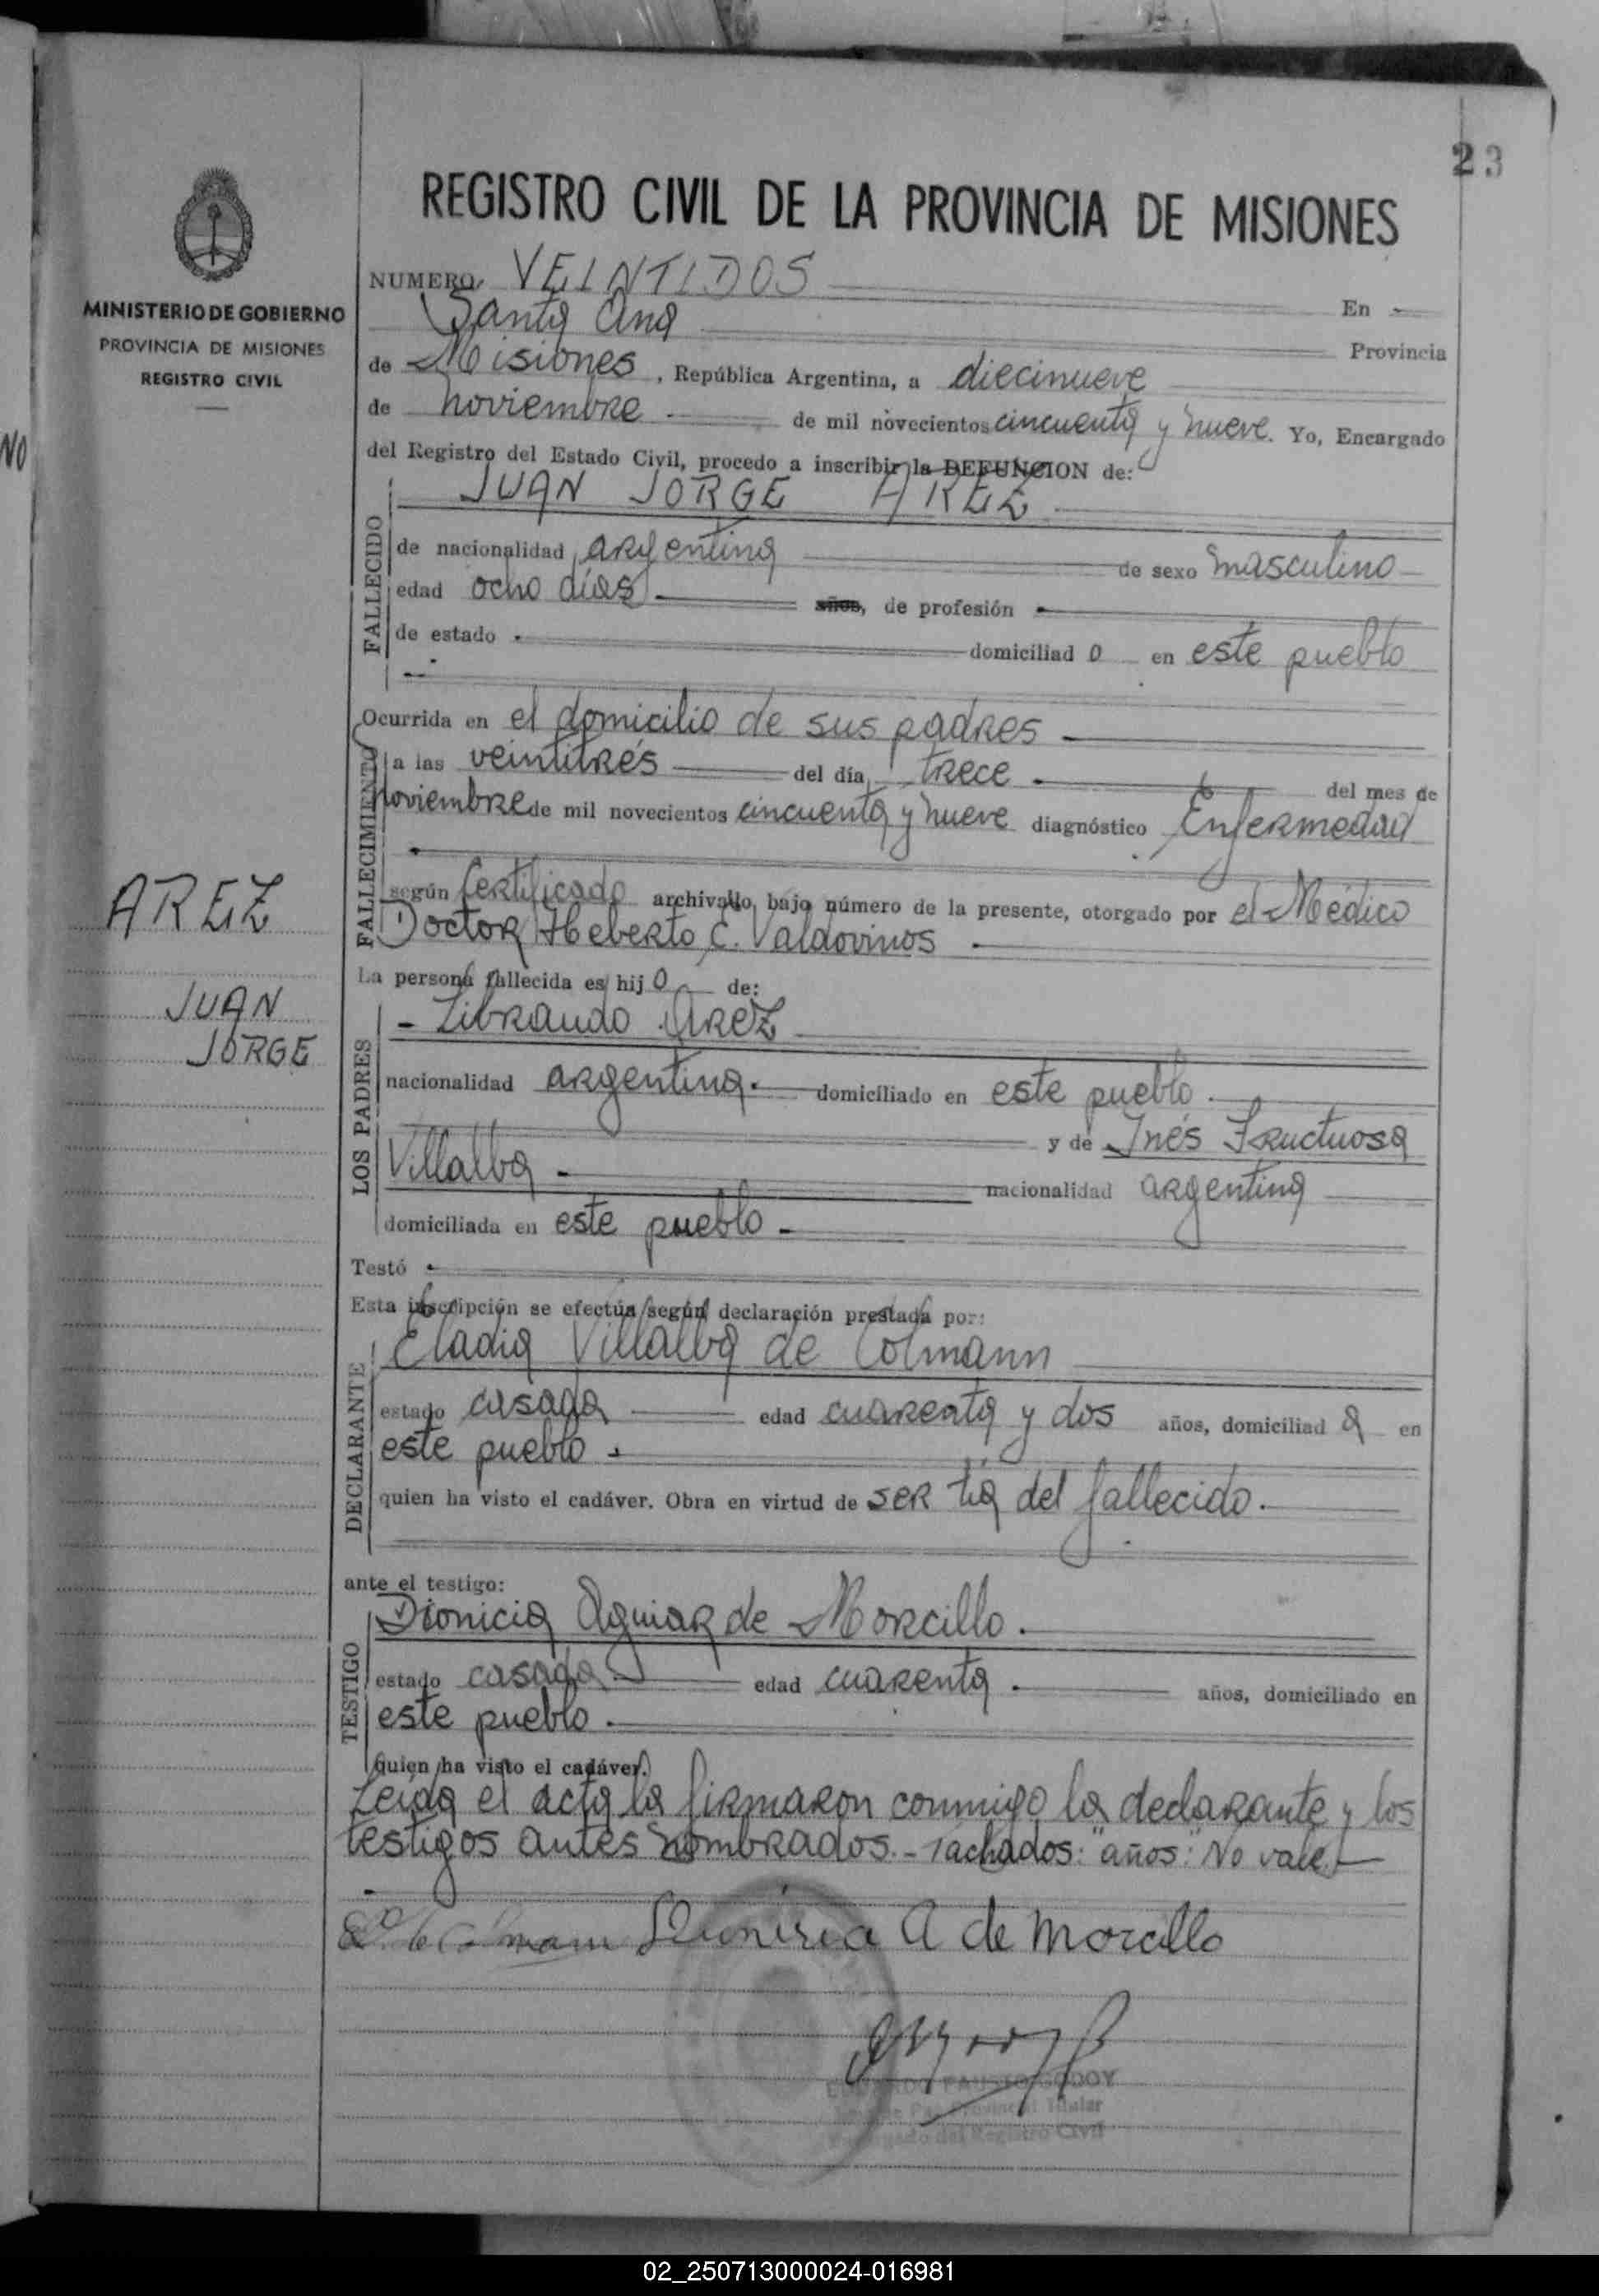 23
REGISTRO CIVIL DE LA PROVINCIA DE MISIONES
MINISTERIO DE GOBIERNO
PROVINCIA DE MISIONES
REGISTRO CIVIL
NO
AREZ
JUAN
JORGE
NUMERO VEINTIDOS En
Santa Ana Provincia
de Misiones, República Argentina, a diecinueve
de noviembre de mil novecientos cincuenta y nueve. Yo, Encargado
del Registro del Estado Civil, procedo a inscribir la DEFUNCION de:
JUAN JORGE AREZ
FALLECIDO
de nacionalidad argentina de sexo masculino
edad ocho días años, de profesión
de estado domiciliad o en este pueblo
FALLECIMIENTO
Ocurrida en el domicilio de sus padres
a las veintitrés del día trece del mes de
noviembre de mil novecientos cincuenta y nueve diagnóstico Enfermedad
según Certificado archivado bajo número de la presente, otorgado por el Médico
Doctor Heberto C. Valdovinos
La persona fallecida es hij o de:
LOS PADRES
- Librando Arez
nacionalidad argentina. domiciliado en este pueblo.
y de Inés Fructuosa
Villalba - nacionalidad argentina
domiciliada en este pueblo -
Testó
Esta inscripción se efectúa según declaración prestada por:
DECLARANTE
Eladia Villalba de Colmann
estado casada edad cuarenta y dos años, domiciliad a en
este pueblo
quien ha visto el cadáver. Obra en virtud de ser tía del fallecido.
ante el testigo:
TESTIGO
Dionicia Aguiar de Morcillo.
estado casada edad cuarenta. años, domiciliado en
este pueblo.
quien ha visto el cadáver.
Leída el acta la firmaron conmigo la declarante y los
testigos antes nombrados.- Tachados: "años": No vale.
de Colmann Dionisia A de Morcillo
FAUSTO GODOY
Juez de Paz Provincial Titular
Encargado del Registro Civil
02_250713000024-016981